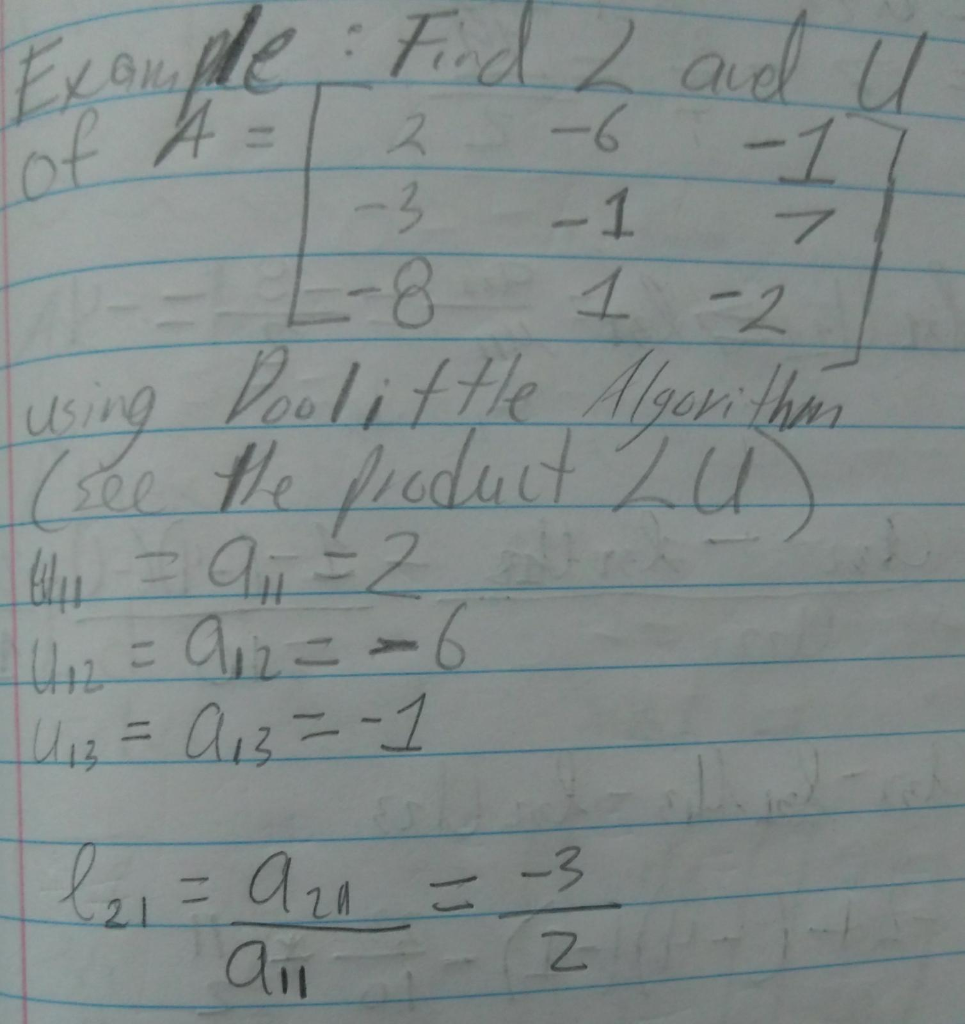 Example: Find L and U
of A = [ 2 -6 -1
-3 -1 7
-8 1 -2 ]
using Doolittle Algorithm
(see the product LU)
u₁₁ = a₁₁ = 2
u₁₂ = a₁₂ = -6
u₁₃ = a₁₃ = -1
l₂₁ = a₂₁ / a₁₁ = -3 / 2